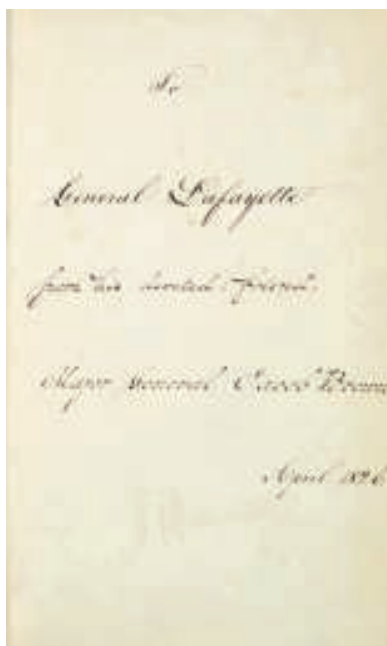 To
General Lafayette
from his devoted friend.
Major General Jacob Brown
April 1826